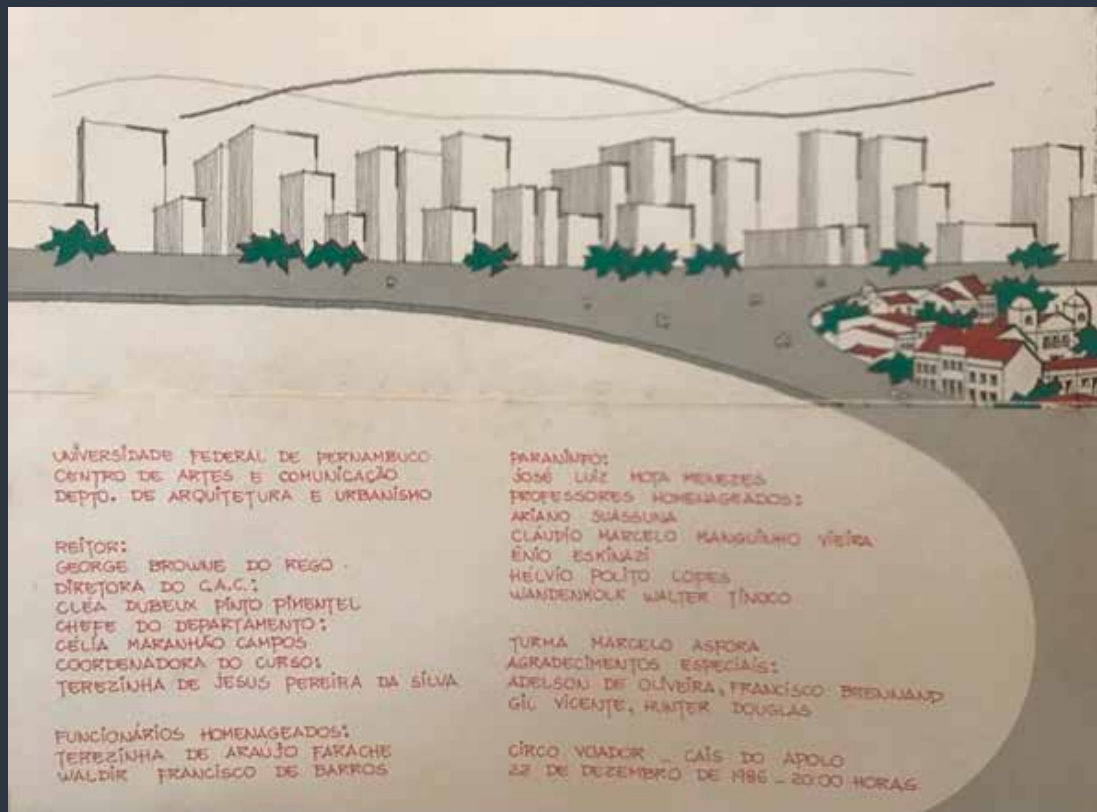 UNIVERSIDADE FEDERAL DE PERNAMBUCO
CENTRO DE ARTES E COMUNICAÇÃO
DEPTO. DE ARQUITETURA E URBANISMO
REITOR:
GEORGE BROWNE DO REGO
DIRETORA DO C.A.C.:
CLÉA DUBEUX PINTO PIMENTEL
CHEFE DO DEPARTAMENTO:
CÉLIA MARANHÃO CAMPOS
COORDENADORA DO CURSO:
TEREZINHA DE JESUS PEREIRA DA SILVA
FUNCIONÁRIOS HOMENAGEADOS:
TEREZINHA DE ARAÚJO FARACHE
WALDIR FRANCISCO DE BARROS
PARANINFO:
JOSÉ LUIZ MOTA MENEZES
PROFESSORES HOMENAGEADOS:
ARIANO SUASSUNA
CLÁUDIO MARCELO MANGUINHO VIEIRA
ÊNIO ESKINAZI
HÉLVIO POLITO LOPES
WANDENKOLK WALTER TINOCO
TURMA MARCELO ASFORA
AGRADECIMENTOS ESPECIAIS:
ADELSON DE OLIVEIRA, FRANCISCO BRENNAND
GIL VICENTE, HUNTER DOUGLAS
CIRCO VOADOR _ CAIS DO APOLO
22 DE DEZEMBRO DE 1986 _ 20:00 HORAS